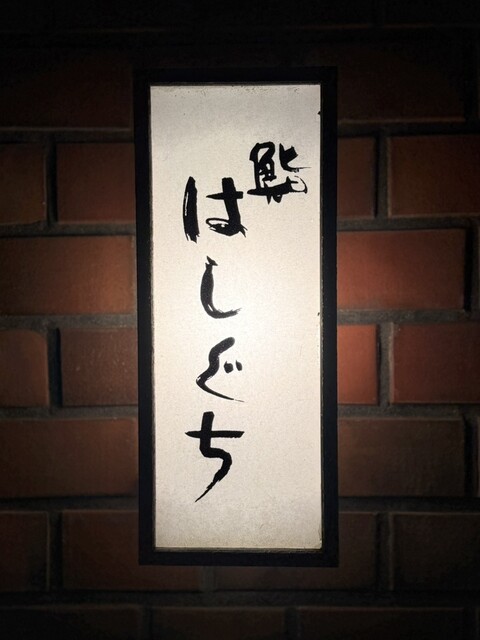 鮨
はしぐち